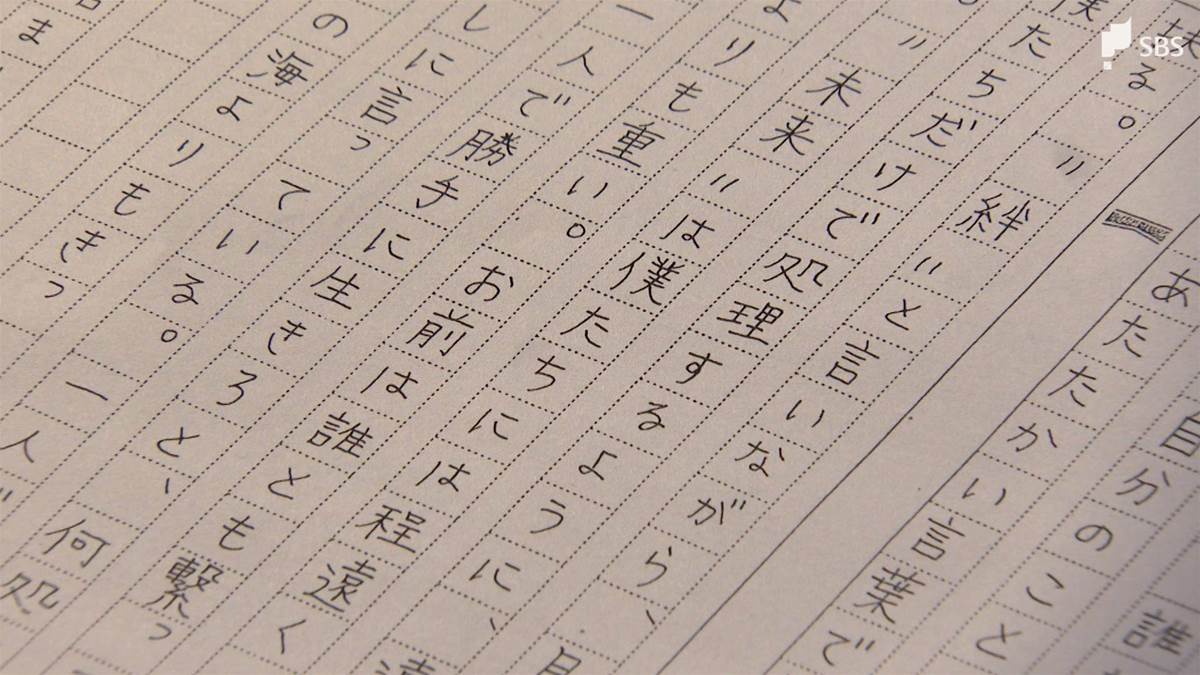 誰
自分のこと
あたたかい言葉で
る。〃絆〃と言いながら、
僕たちだけで処理するように、
。〃未来〃は僕たちには程遠く
よりも重い。お前は誰とも繋っ
一人で勝手に生きろと、何処
しに言っている。一人
の海よりもきっ
ま
SBS